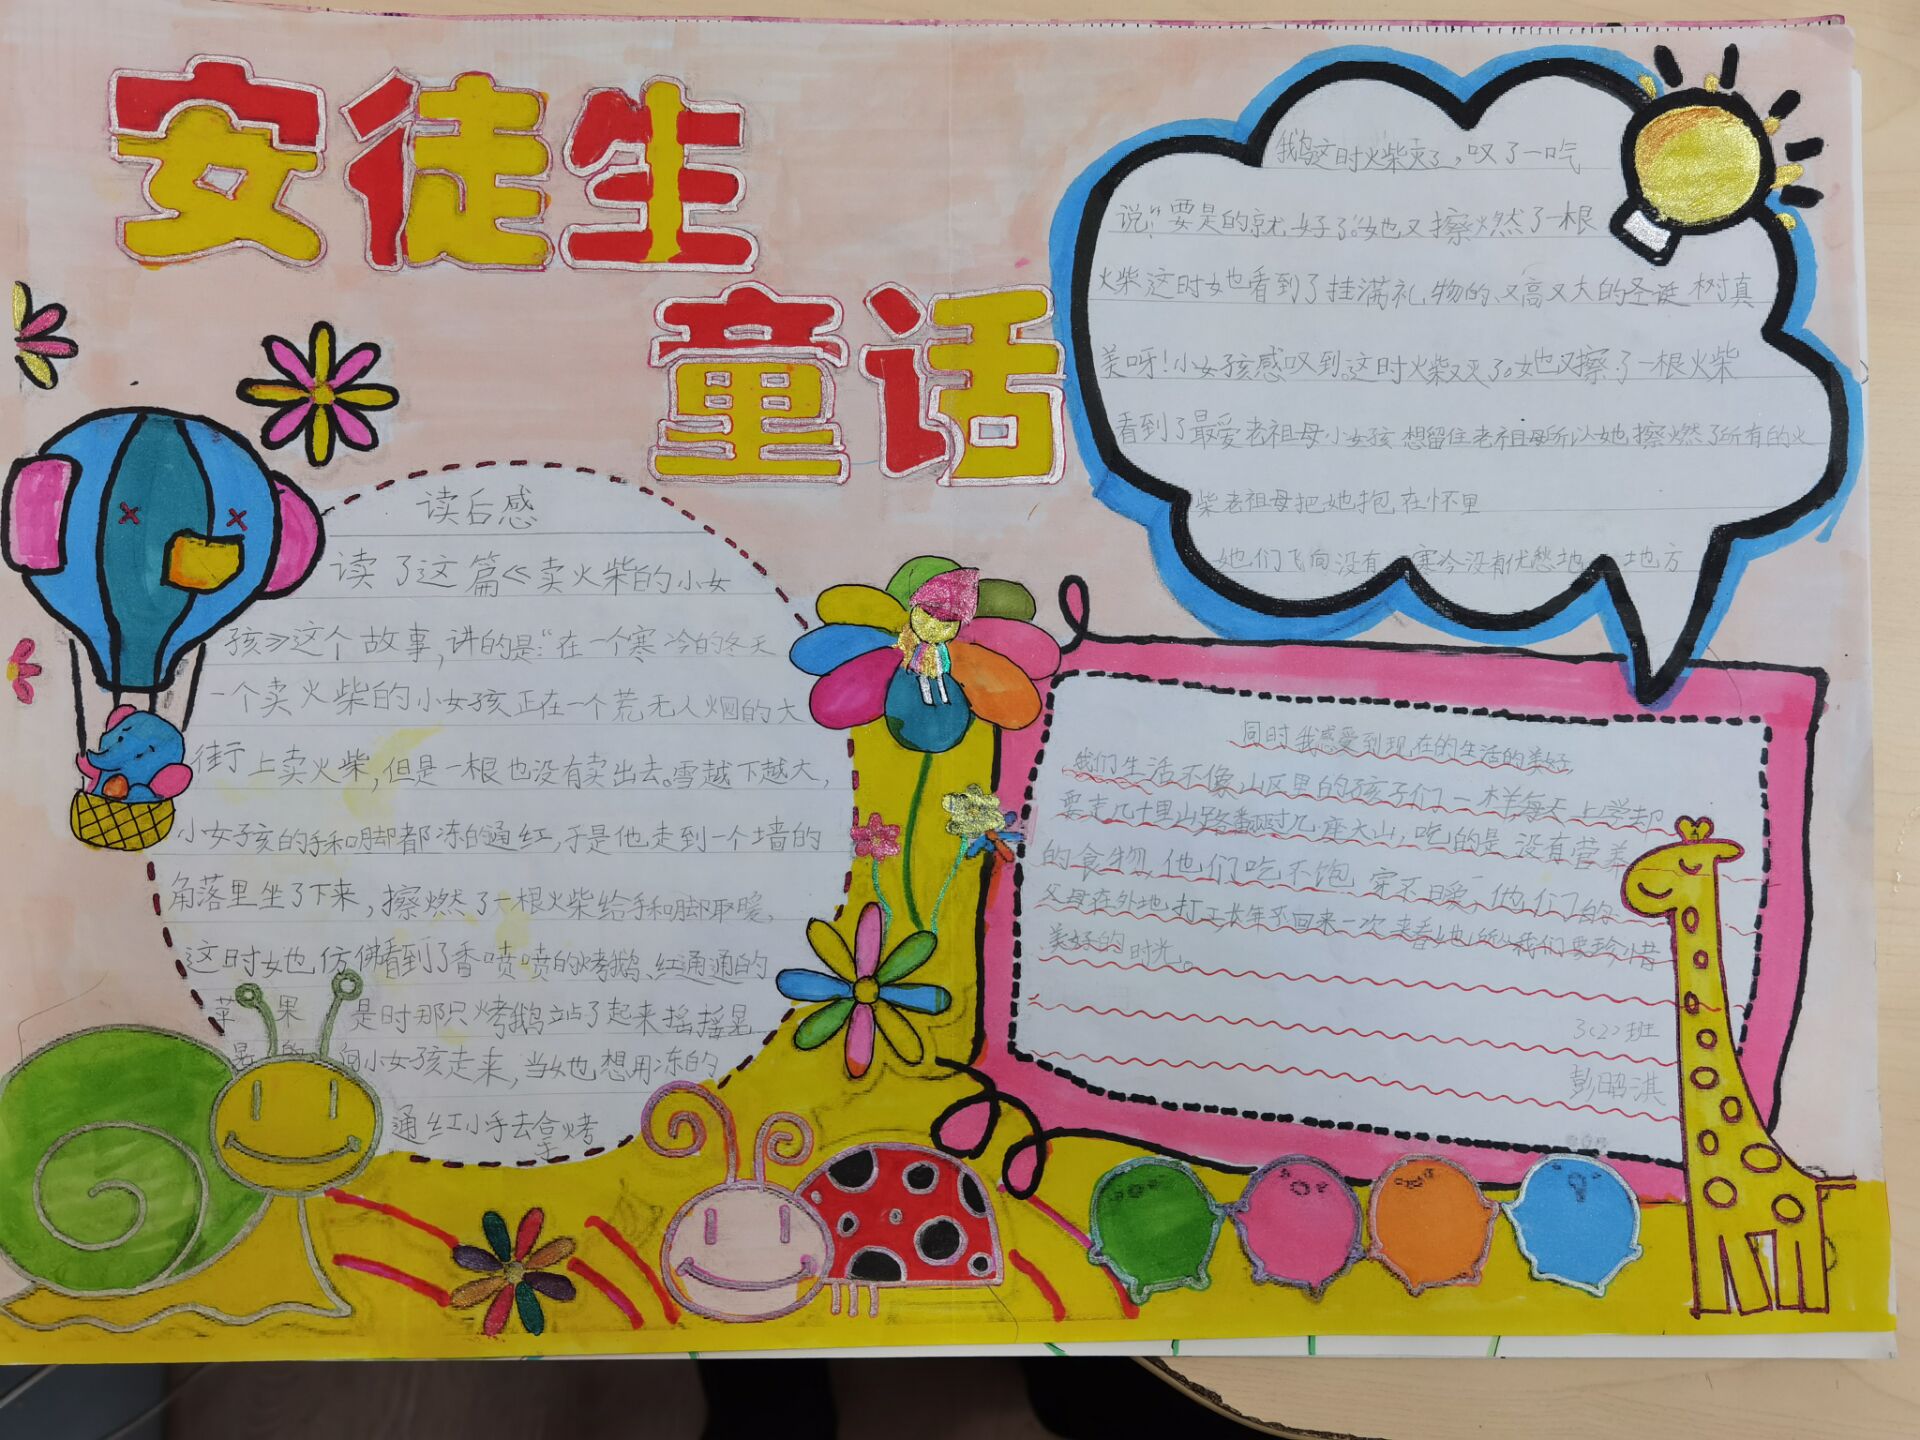 安徒生
童话
读后感
读了这篇《卖火柴的小女
孩》这个故事,讲的是:"在一个寒冷的冬天
一个卖火柴的小女孩正在一个荒无人烟的大
街上卖火柴,但是一根也没有卖出去。雪越下越大,
小女孩的手和脚都冻的通红,于是他走到一个墙的
角落里坐了下来,擦燃了一根火柴给手和脚取暖,
这时她仿佛看到了香喷喷的烤鹅、红通通的
苹果 是时那只烤鹅站了起来摇摇晃
晃的 向小女孩走来,当她想用冻的
通红小手去拿烤
鹅这时火柴灭了,叹了一口气
说:"要是的就好了。"她又擦燃了一根
火柴这时她看到了挂满礼物的、又高又大的圣诞树真
美呀!小女孩感叹到。这时火柴又灭了。她又擦了一根火柴
看到了最爱老祖母小女孩想留住老祖母所以她擦燃了所有的火
柴老祖母把她抱在怀里
她们飞向没有 寒冷没有优愁地 地方
同时我感爱到现在的生活的美好
我们生活不像山区里的孩子们一样每天上学却
要走几十里山路翻过几座大山,吃的是没有营养
的食物,他们吃不饱 穿不暖,他们的
父母在外地打工长年不回来一次来看她,所以我们要珍惜
美好的时光。
3(2)班
彭昭淇